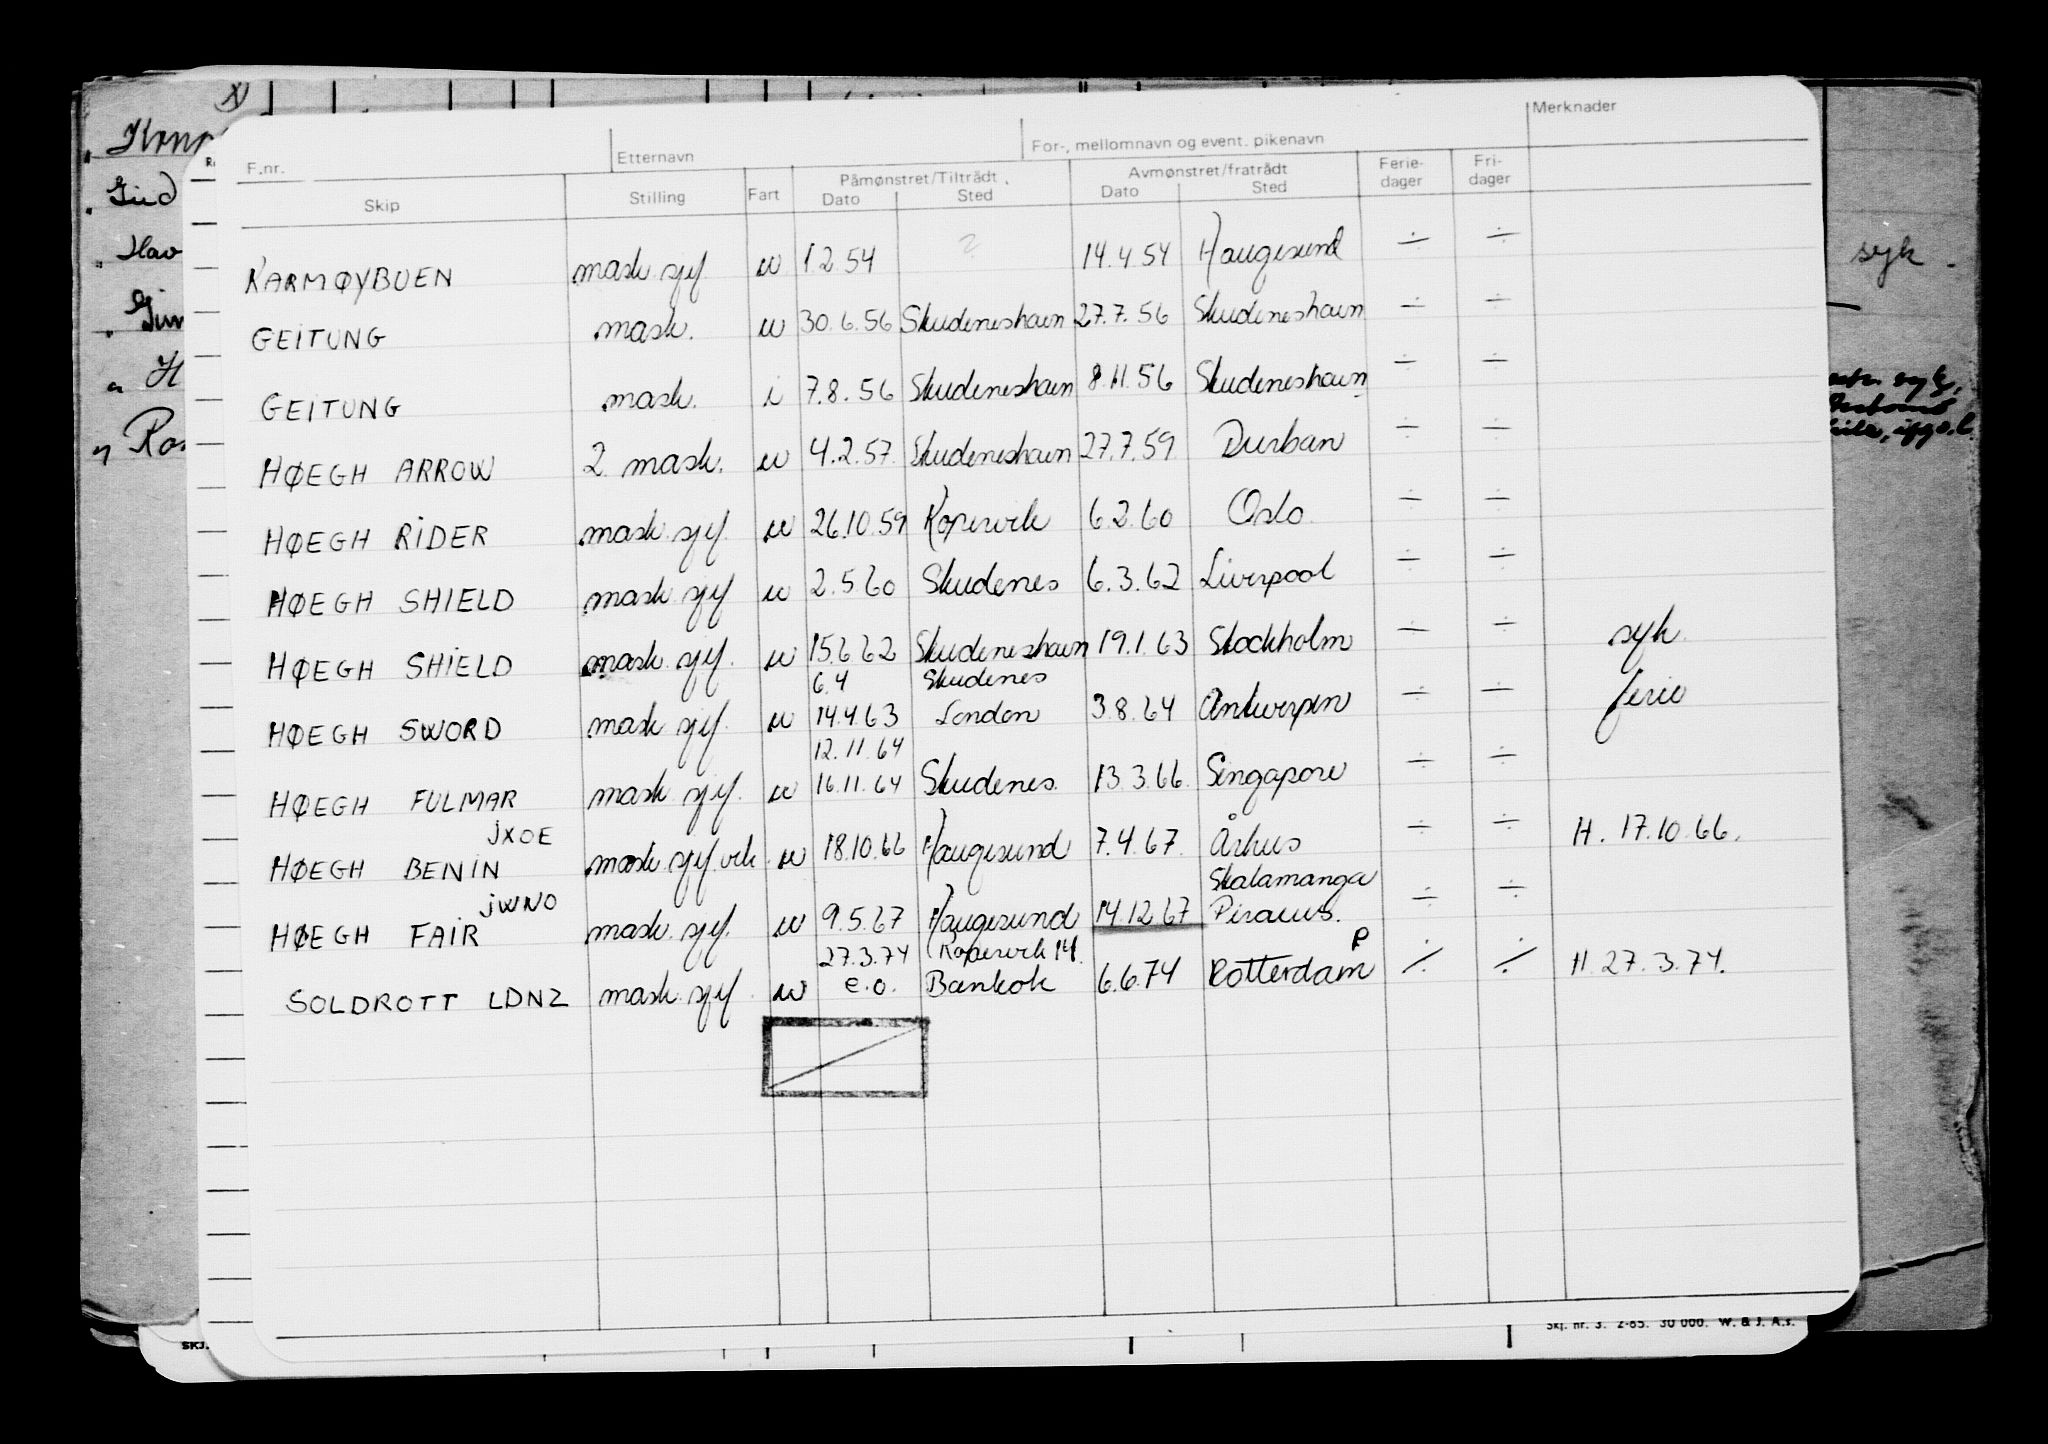 Merknader
F.nr. Etternavn For-, mellomnavn og event. pikenavn
Skip Stilling Fart Påmønstret/Tiltrådt Avmønstret/fratrådt Ferie- Fri-
Dato Sted Dato Sted dager dager
KARMØYBUEN mask sjef u 1 2 54 ? 14.4 54 Haugesund ÷ ÷
GEITUNG mask. u 30.6.56 Skudeneshavn 27.7.56 Skudeneshavn ÷ ÷
GEITUNG mask. i 7.8.56 Skudeneshavn 8.11.56 Skudeneshavn ÷ ÷
HØEGH ARROW 2 mask. u 4.2.57 Skudeneshavn 27.7.59 Durban ÷ ÷
HØEGH RIDER mask sjef u 26.10.59 Kopervik 6.2.60 Oslo ÷ ÷
HØEGH SHIELD mask sjef u 2.5.60 Skudenes 6.3.62 Liverpool ÷ ÷
HØEGH SHIELD mask sjef. u 15.6 62 Skudeneshavn 19.1.63 Stockholm ÷ ÷ syk.
6.4 Skudenes
HØEGH SWORD mask sjef. u 14.4.63 London 3.8.64 Antwerpen ÷ ÷ ferie
12.11.64
HØEGH FULMAR mask sjef. u 16.11.64 Skudenes. 13.3.66 Singapore ÷ ÷
JXOE
HØEGH BENIN mask.sjef.vik u 18.10.66 Haugesund 7.4.67. Århus ÷ ÷ H. 17.10.66.
JWNO Skalamanga
HØEGH FAIR mask. sjef. u 9.5.67 Haugesund 14.12.67 Piraeus. ÷ ÷
27.3.74 Kopervik 14. P
SOLDROTT LDNZ mask. sjef. u e.o. Bankok 6.6.74 Rotterdam ÷ ÷ H. 27.3.74.
Gud
Hav
syk.
Skj. nr. 3. 2-65. 30 000. W. & J. A.s.
SKJ.